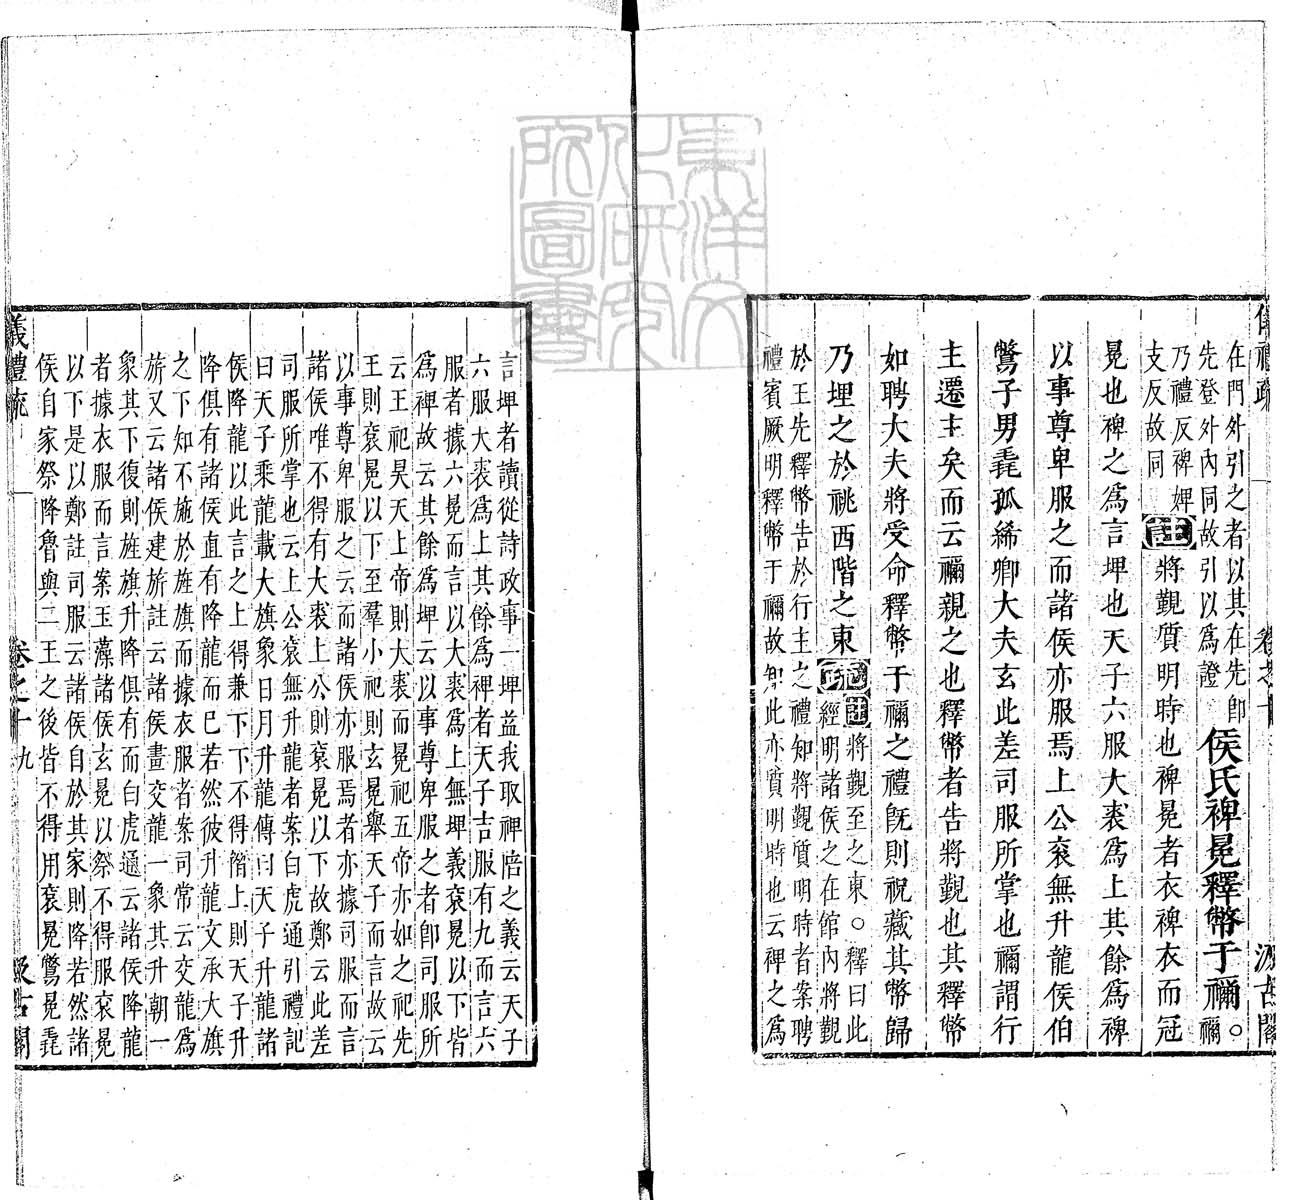 儀禮疏 卷之十 汲古閣
在門外引之者以其在先卽
先登外內同故引以爲證
侯氏裨冕釋幣于禰。禰
乃禮反裨婢
支反故同
註將覲質明時也裨冕者衣裨衣而冠
冕也裨之爲言埤也天子六服大裘爲上其餘爲裨
以事尊卑服之而諸侯亦服焉上公衮無升龍侯伯
鷩子男毳孤絺卿大夫玄此差司服所掌也禰謂行
主遷主矣而云禰親之也釋幣者告將覲也其釋幣
如聘大夫將受命釋幣于禰之禮旣則祝藏其幣歸
乃埋之於祧西階之東疏
註將覲至之東。釋曰此
經明諸侯之在館內將覲
於王先釋幣告於行主之禮知將覲質明時者案聘
禮賓厥明釋幣于禰故知此亦質明時也云裨之爲
言埤者讀從詩政事一埤益我取裨陪之義云天子
六服大裘爲上其餘爲裨者天子吉服有九而言六
服者據六冕而言以大裘爲上無埤義衮冕以下皆
爲裨故云其餘爲埤云以事尊卑服之者卽司服所
云王祀昊天上帝則大裘而冕祀五帝亦如之祀先
王則衮冕以下至羣小祀則玄冕舉天子而言故云
以事尊卑服之云而諸侯亦服焉者亦據司服而言
諸侯唯不得有大裘上公則衮冕以下故鄭云此差
司服所掌也云上公衮無升龍者案白虎通引禮記
曰天子乘龍載大旗象日月升龍傳曰天子升龍諸
侯降龍以此言之上得兼下下不得僭上則天子升
降俱有諸侯直有降龍而已若然彼升龍文承大旗
之下知不施於旌旗而據衣服者案司常云交龍爲
旂又云諸侯建旂註云諸侯畫交龍一象其升朝一
象其下復則旌旗升降俱有而白虎通云諸侯降龍
者據衣服而言案玉藻諸侯玄冕以祭不得服衮冕
以下是以鄭註司服云諸侯自於其家則降若然諸
侯自家祭降魯與二王之後皆不得用衮冕鷩冕毳
儀禮疏 卷之十 九 汲古閣
東洋文化研究所圖書